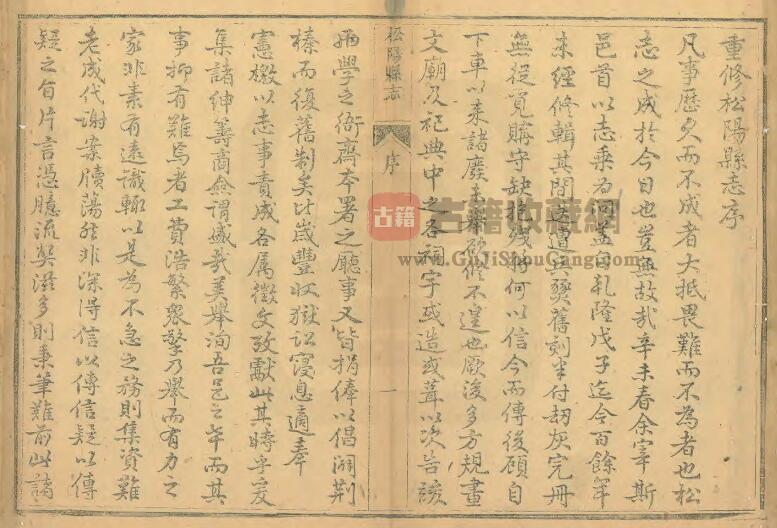 重修松陽縣志序
凡事歷久而不成者大抵畏難而不為者也松
志之成於今日也豈無故哉辛未春余宰斯
邑首以志乘為問蓋自乾隆戊子迄今百餘年
未經修輯其間迭遭兵燹舊刻半付刼灰完冊
無從覓購守缺抱殘將何以信今而傳後顧自
下車以來諸廢未舉砂修不遑也厥後多方規畫
文廟及祀典中之各祠宇或造或葺以次告竣
松陽縣志
序
一
兩學之衙齋本署之廳事又皆捐俸以倡闢荆
榛而復舊制矣比歲豐收獄訟寢息適奉
憲檄以志事責成各属徵文攷獻此其時乎爰
集諸紳籌商僉謂盛哉美舉洵吾邑之幸而其
事抑有難焉者工費浩繁衆擎乃舉而有力之
家非素有遠識輒以是為不急之務則集資難
老成代謝案牘蕩然非深得信以傳信疑以傳
疑之旨片言憑臆流弊滋多則秉筆難前此諸
古籍
古籍收藏網
www.GuJiShouCang.com